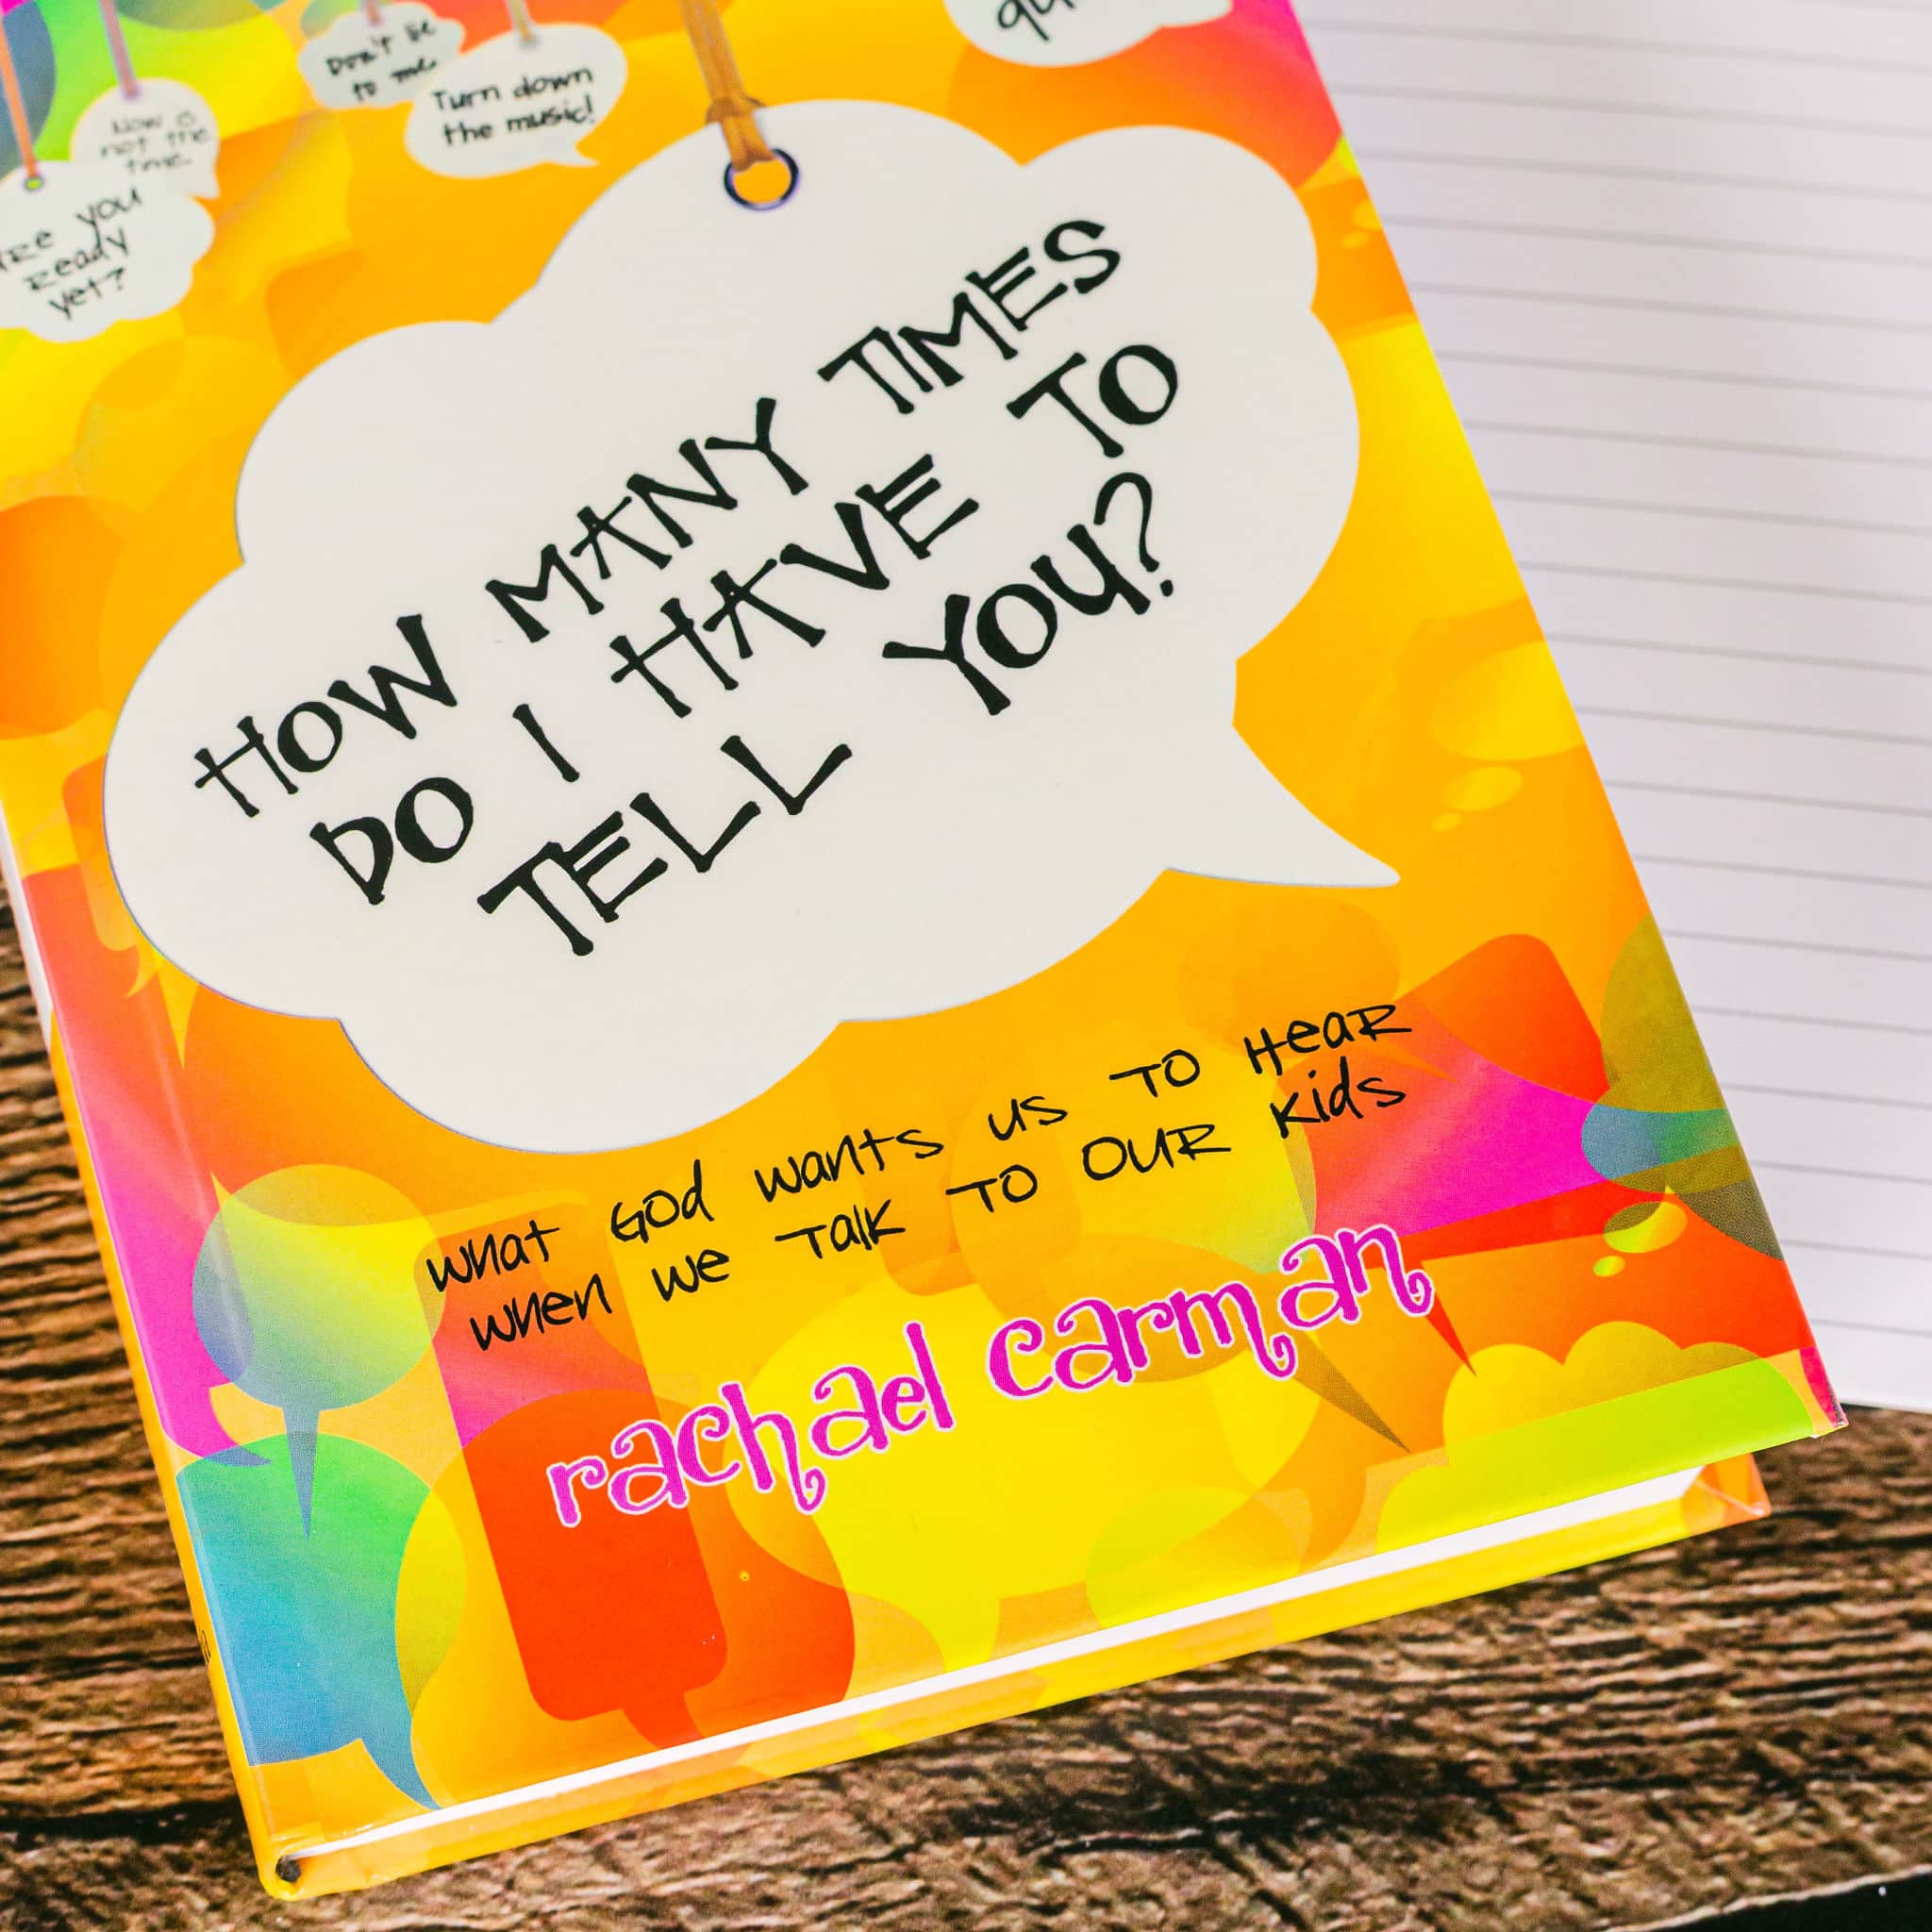 Don't lie
to me.
Turn down
the music!
Now is
not the
time.
Are you
ready
yet?
HOW MANY TIMES
DO I HAVE TO
TELL YOU?
what God wants us to hear
when we talk to our kids
rachael carman